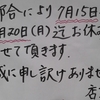 都合により7月15日
20日(月)迄お休
せて頂きます.
誠に申し訳けありませ